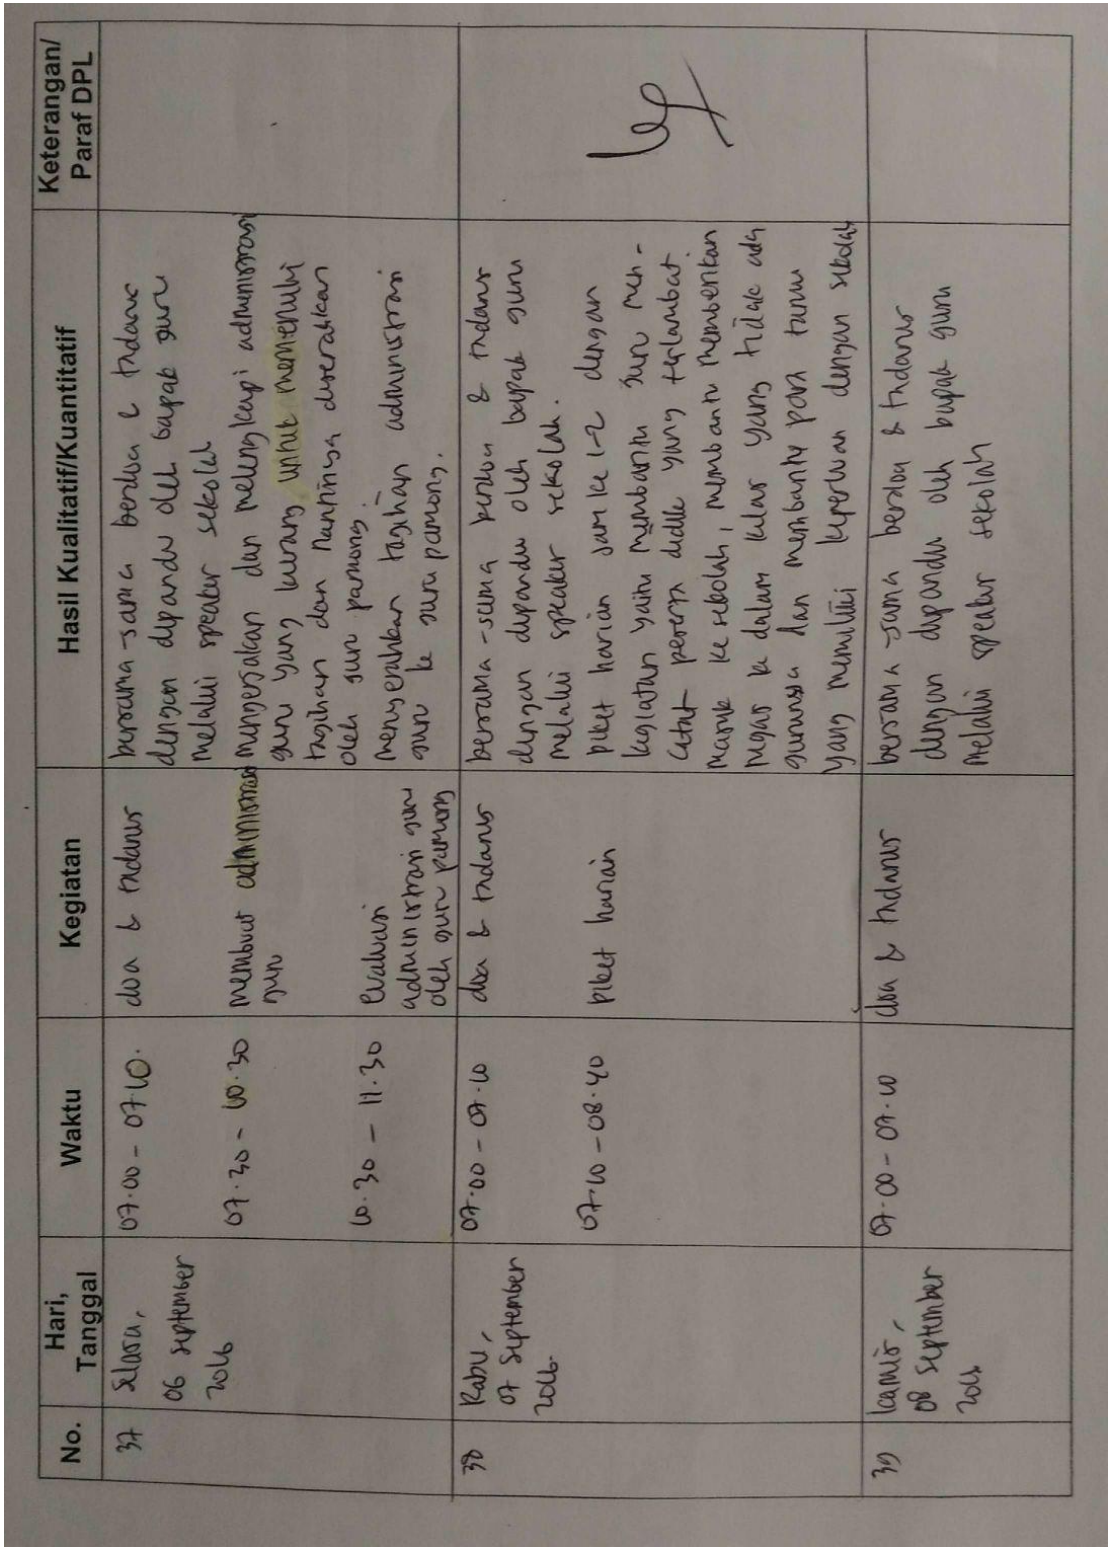 No.
Hari,
Tanggal
Waktu
Kegiatan
Hasil Kualitatif/Kuantitatif
Keterangan/
Paraf DPL
37
Selasa,
06 September
2016
07.00 - 07.10.
doa & tadarus
bersama-sama berdoa & tadarus
dengan dipandu oleh bapak guru
melalui speaker sekolah
07.30 - 10.30
membuat administrasi
guru
mengerjakan dan melengkapi administrasi
guru yang kurang, untuk memenuhi
tagihan dan nantinya diserahkan
oleh guru pamong.
10.30 - 11.30
evaluasi
administrasi guru
oleh guru pamong
menyerahkan tagihan administrasi
guru ke guru pamong.
38
Rabu,
07 September
2016.
07.00 - 07.10
doa & tadarus
bersama-sama berdoa & tadarus
dengan dipandu oleh bapak guru
melalui speaker sekolah.
07.10 - 08.40
piket harian
piket harian jam ke 1-2 dengan
kegiatan yaitu membantu guru men-
catat peserta didik yang terlambat
masuk ke sekolah, membantu memberikan
tugas ke dalam kelas yang tidak ada
gurunya dan membantu para tamu
yang memiliki keperluan dengan sekolah
39
Kamis,
08 September
2016
07.00 - 07.10
doa & tadarus
bersama-sama berdoa & tadarus
dengan dipandu oleh bapak guru
melalui speaker sekolah